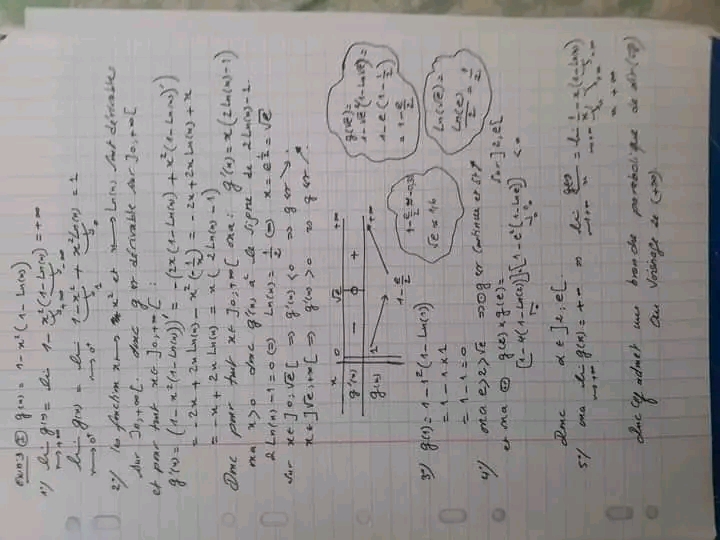 g(x) = 1 - x²(1 - ln(x))
1°/ lim g(x) = lim 1 - x²(1 - ln(x)) = +∞
x→+∞
lim g(x) = lim 1 - x² + x² ln(x) = 1
x→0⁺ x→0⁺
2°/ la fonction x → x² et x → ln(x) sont dérivable
sur ]0,+∞[. donc g est dérivable sur ]0,+∞[
et pour tout x ∈ ]0,+∞[ :
g'(x) = (1 - x²(1 - ln(x)))' = -(2x(1 - ln(x)) + x²(1 - ln(x))')
= -2x + 2x ln(x) - x²(-1/x) = -2x + 2x ln(x) + x
= -x + 2x ln(x) = x(2 ln(x) - 1)
Donc pour tout x ∈ ]0,+∞[ on a : g'(x) = x(2 ln(x) - 1)
on a x > 0 donc g'(x) a le signe de 2 ln(x) - 1.
2 ln(x) - 1 = 0 ⇔ ln(x) = 1/2 ⇔ x = e^(1/2) = √e
sur x ∈ ]0,√e[ ⇒ g'(x) < 0 ⇒ g est ↘.
x ∈ ]√e,+∞[ ⇒ g'(x) > 0 ⇒ g est ↗
x 0 √e +∞
g'(x) - 0 +
g(x) 1 ↘ 1 - e/2 ↗ +∞
g(√e) =
1 - √e²(1 - ln(√e)) =
1 - e(1 - 1/2)
= 1 - e/2
ln(√e) =
ln(e)/2 = 1/2
1 - e/2 ≈ -0,35
√e ≈ 1,6
3°/ g(1) = 1 - 1²(1 - ln(1))
= 1 - 1 × 1
= 1 - 1 = 0
4°/ on a e > 2 > √e ⇒ g est continue et st ↗
sur ]2,e[
et on a g(2) × g(e) =
[1 - 4(1 - ln(2))] × [1 - e²(1 - ln(e))] < 0
Donc α ∈ ]2,e[
5°/ on a lim g(x) = +∞ ⇒ lim g(x)/x = lim 1/x - x(1 - ln(x))
x→+∞ x→+∞ x→+∞
= +∞
donc Cg admet une branche parabolique de dir (oy)
au voisinage de (+∞)